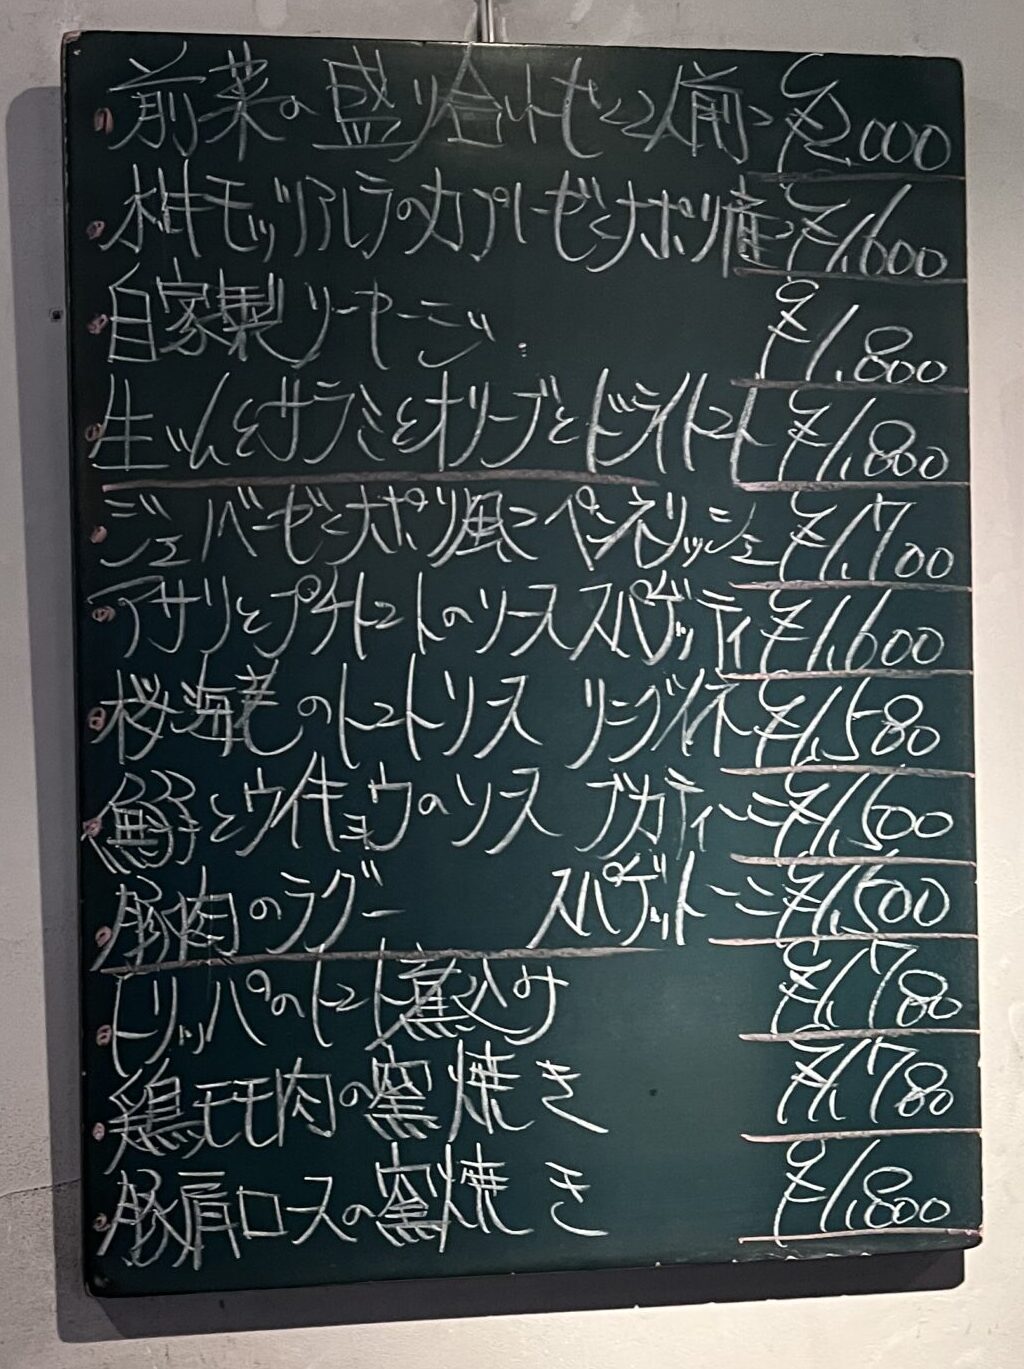 前菜の盛り合わせ(2人前) ¥2,000
水牛モッツァレラのカプレーゼ(ナポリ産) ¥1,600
自家製ソーセージ ¥1,800
生ハムとサラミとオリーブとドライトマト ¥1,800
ジェノベーゼ(ナポリ風) ペンネリッシェ ¥1,700
アサリとプチトマトのソース スパゲッティ ¥1,600
桜海老のトマトソース リングイネ ¥1,580
とウイキョウのソース ブカティーニ ¥1,500
豚肉のラグー スパゲットーニ ¥1,500
トリッパのトマト煮込み ¥1,780
鶏モモ肉の窯焼き ¥1,780
豚肩ロースの窯焼き ¥1,800